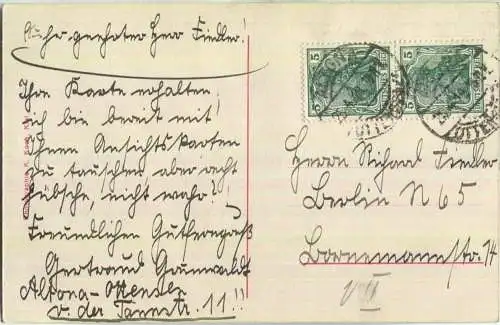 Sehr geehrter Herr Fiedler!
Ihre Karte erhalten,
ich bin bereit mit
Ihnen Ansichtskarten
zu tauschen aber recht
hübsche, nicht wahr!
Freundlichen
Gertraud Grunwaldt
Altona-Ottensen
v. der Tannstr. 11!!
5 5
5 5
Herrn Richard Fiedler
Berlin N 65
Bornemannstr. 14
VII